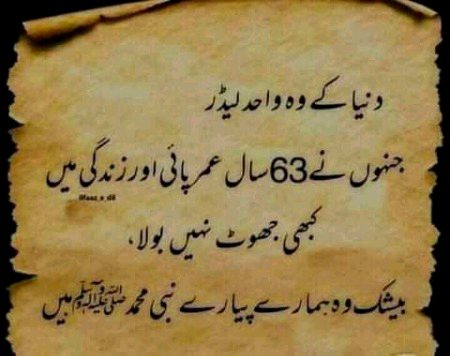 دنیا کے وہ واحد لیڈر
جنہوں نے 63 سال عمر پائی اور زندگی میں
کبھی جھوٹ نہیں بولا،
بیشک وہ ہمارے پیارے نبی محمد ﷺ ہیں